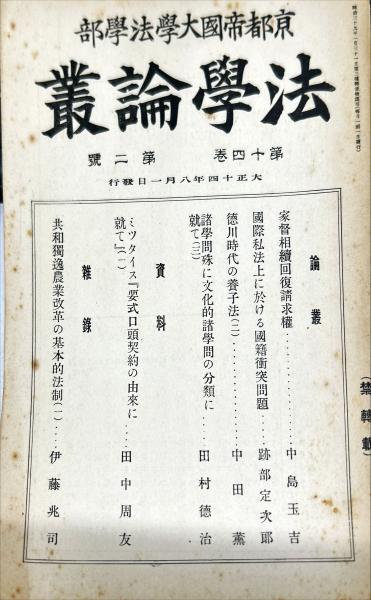 京都帝國大學法學部
法學論叢
第十四卷 第二號
大正十四年八月一日發行
論叢
家督相續回復請求權……中島玉吉
國際私法上に於ける國籍衝突問題……跡部定次郎
德川時代の養子法(二)……中田薰
諸學問殊に文化的諸學問の分類に
就て(三)……田村德治
資料
ミツタイス『要式口頭契約の由來に
就て』(一)……田中周友
雜錄
共和獨逸農業改革の基本的法制(一)……伊藤兆司
(禁轉載)